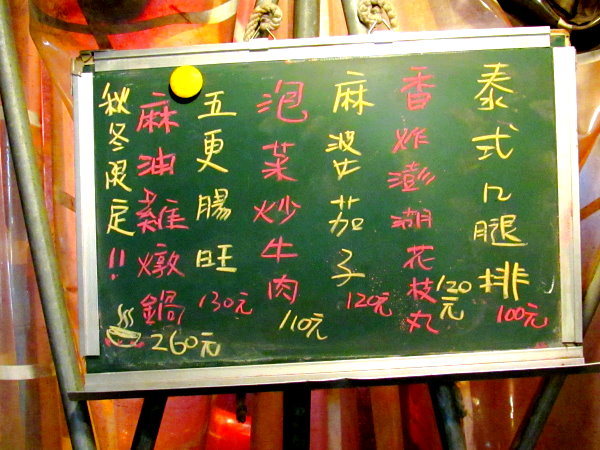 泰式ㄇ腿排
100元
香炸澎湖花枝丸
120元
麻婆茄子
120元
泡菜炒牛肉
110元
五更腸旺
130元
麻油雞燉鍋
260元
秋冬限定!!